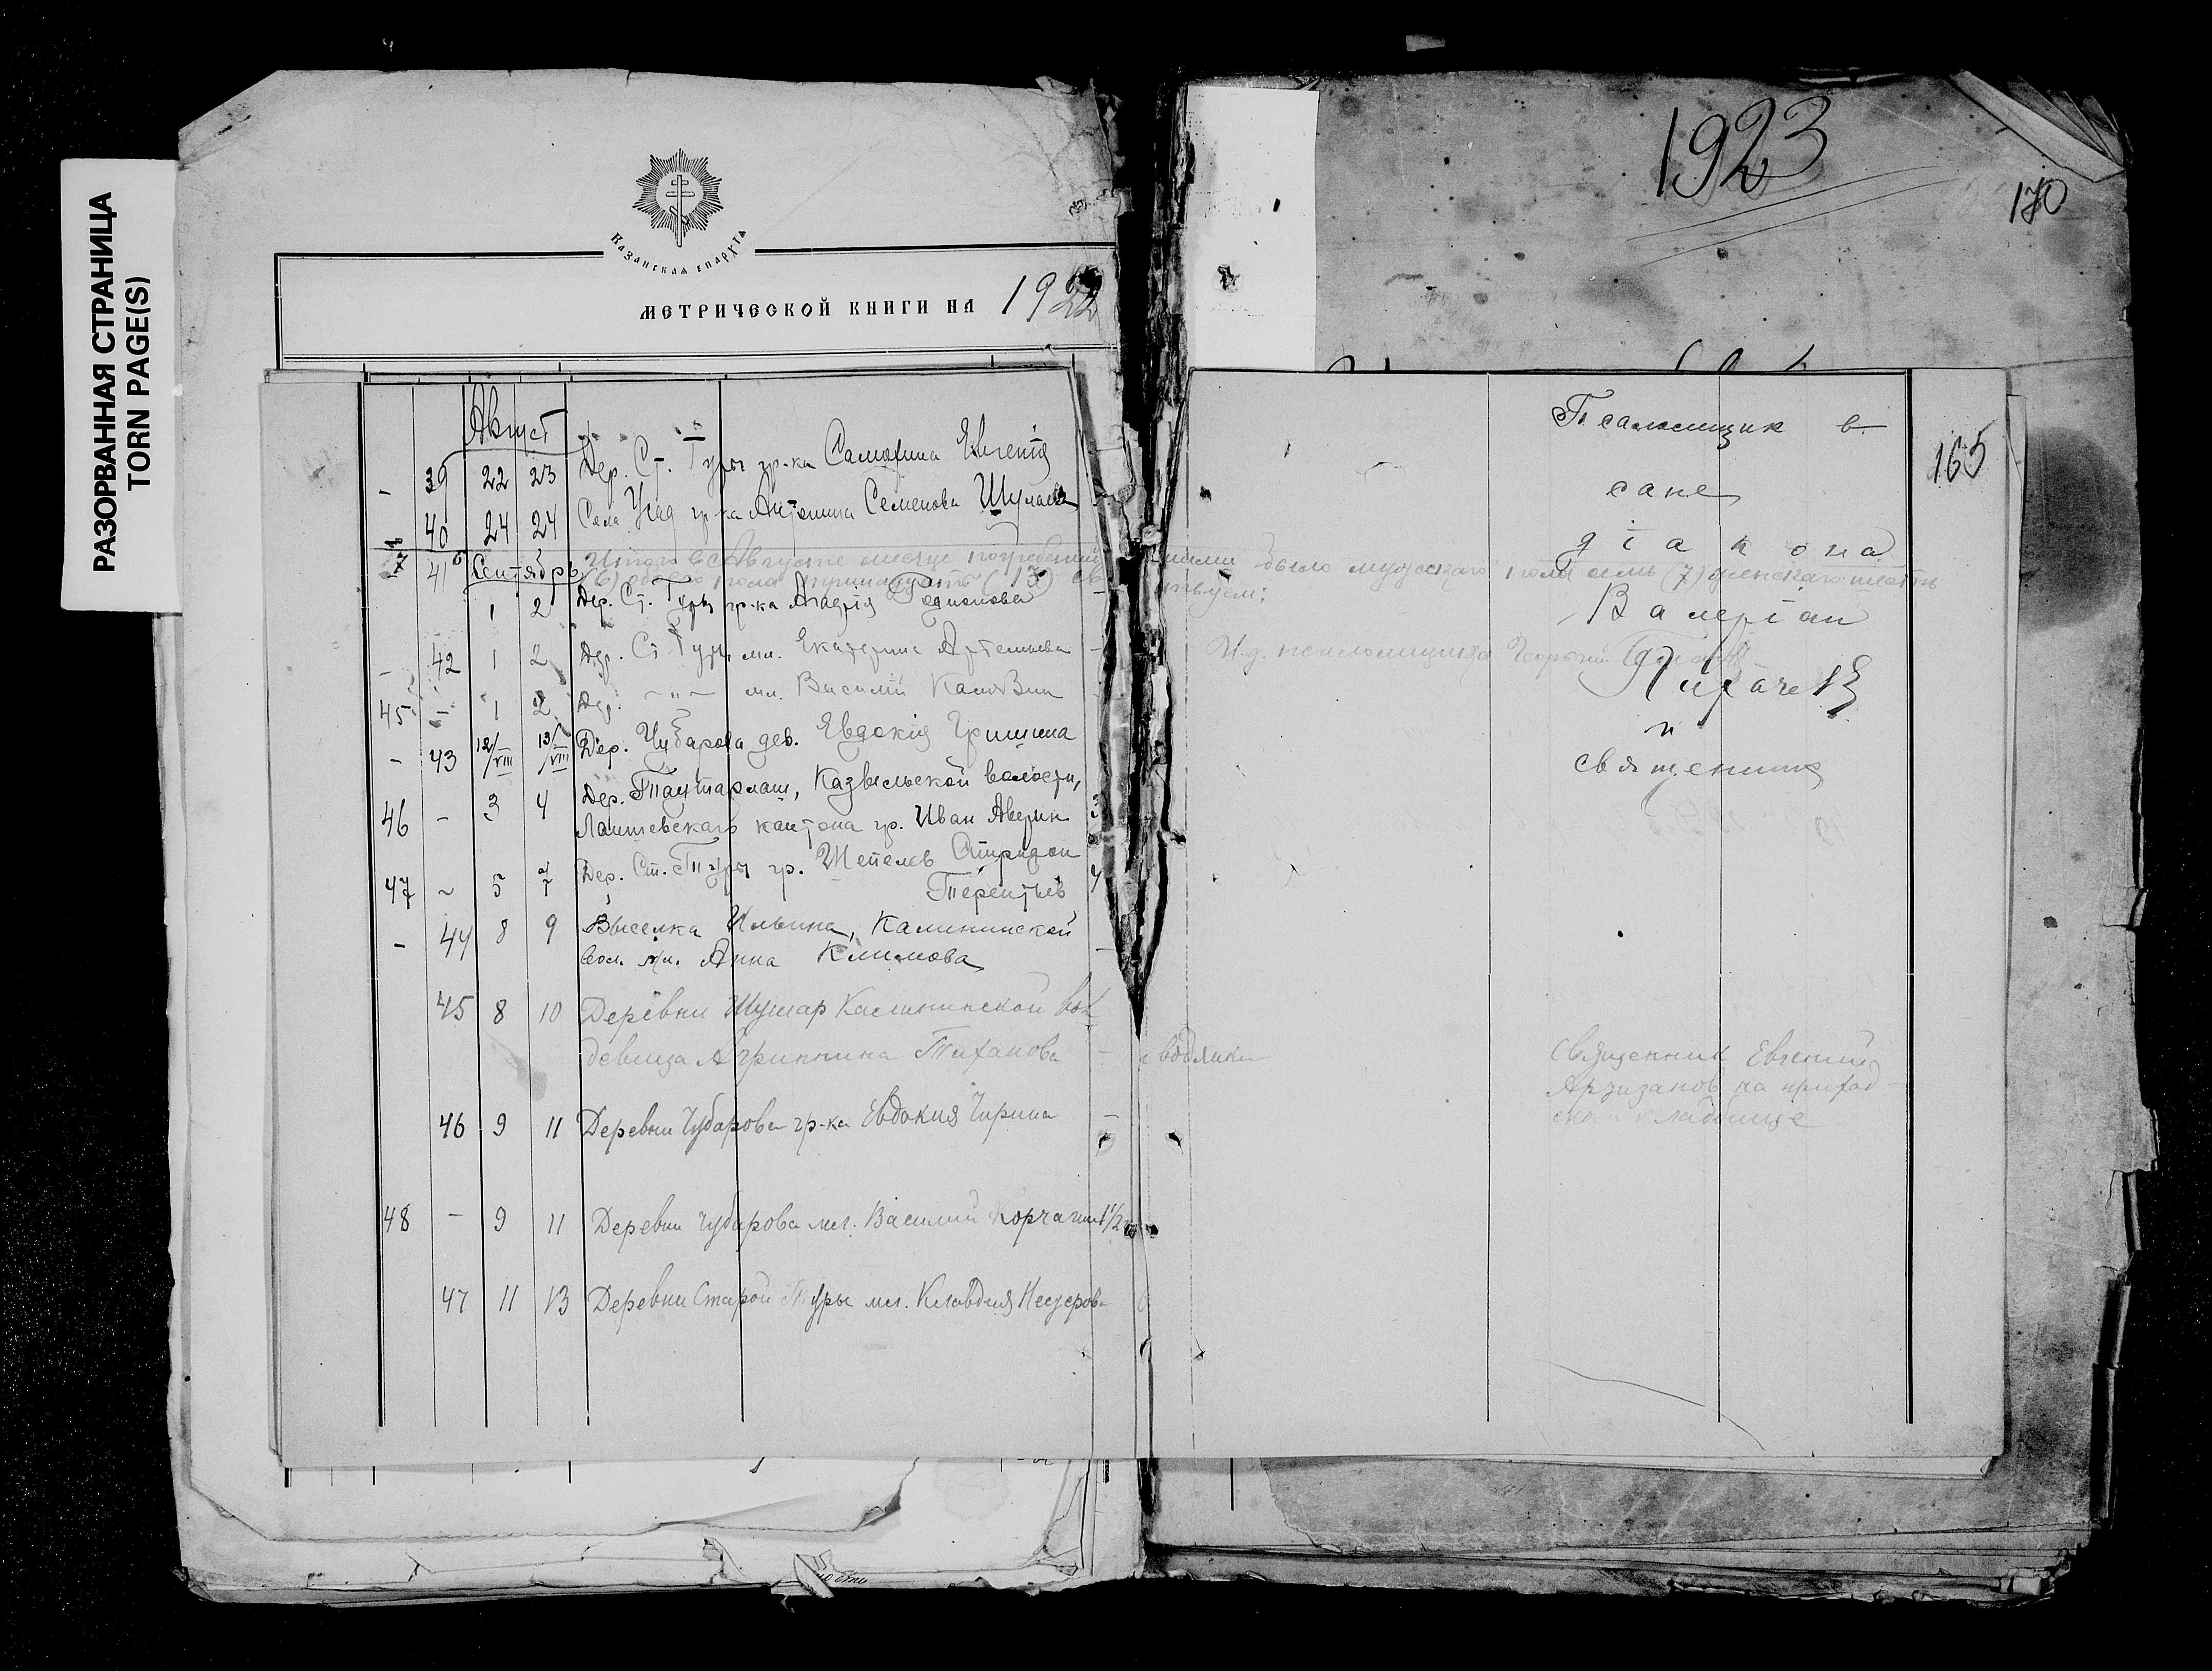 РАЗОРВАННАЯ СТРАНИЦА
TORN PAGE(S)
Казанская епархiя
МЕТРИЧЕСКОЙ КНИГИ НА 1922
Август
- 39 22 23 Дер. Ст. Туры гр-ка Самохина Евгенiя
40 24 24 Села гр-ка Антонина Семенова
Итого в Августе месяце
было мужскаго пола семь (7) женскаго шесть
(6) обоего пола тринадцать (13)
41 Сентябрь
1 2 Дер. Ст. Туры гр-ка Родионова
- 42 1 2 Дер. Ст. Туры мл. Екатерина Артемьева -
45 - 1 2 Дер. -"- мл. Василий
- 43 12/VIII 13/VIII Дер. Чубарова дев. Евдокiя Гришина
46 - 3 4 Дер. Казыльской волости,
Лаишевскаго кантона гр. Иван Аверин
47 ~ 5 7 Дер. Ст. Туры гр. Шепелев Спиридон
Терентьев
- 44 8 9 Выселка Ильина, Калининской
вол. мл. Анна Климова -
45 8 10 Деревни Шумар Калининской вол.
девица Агриппина Тиханова -
46 9 11 Деревни Чубарова гр-ка Евдокия Чирина -
48 - 9 11 Деревни Чубарова мл. Василий Корчагин 1 1/2
47 11 13 Деревни Старой Туры мл. Клавдия Нестерова
1923
170
165
Псаломщик в
сане
дiакона
Валерiан
Лихачев
и
священник
И.д. псаломщика Георгий
водянки
Священник Евгений
на приход-
ском кладбище